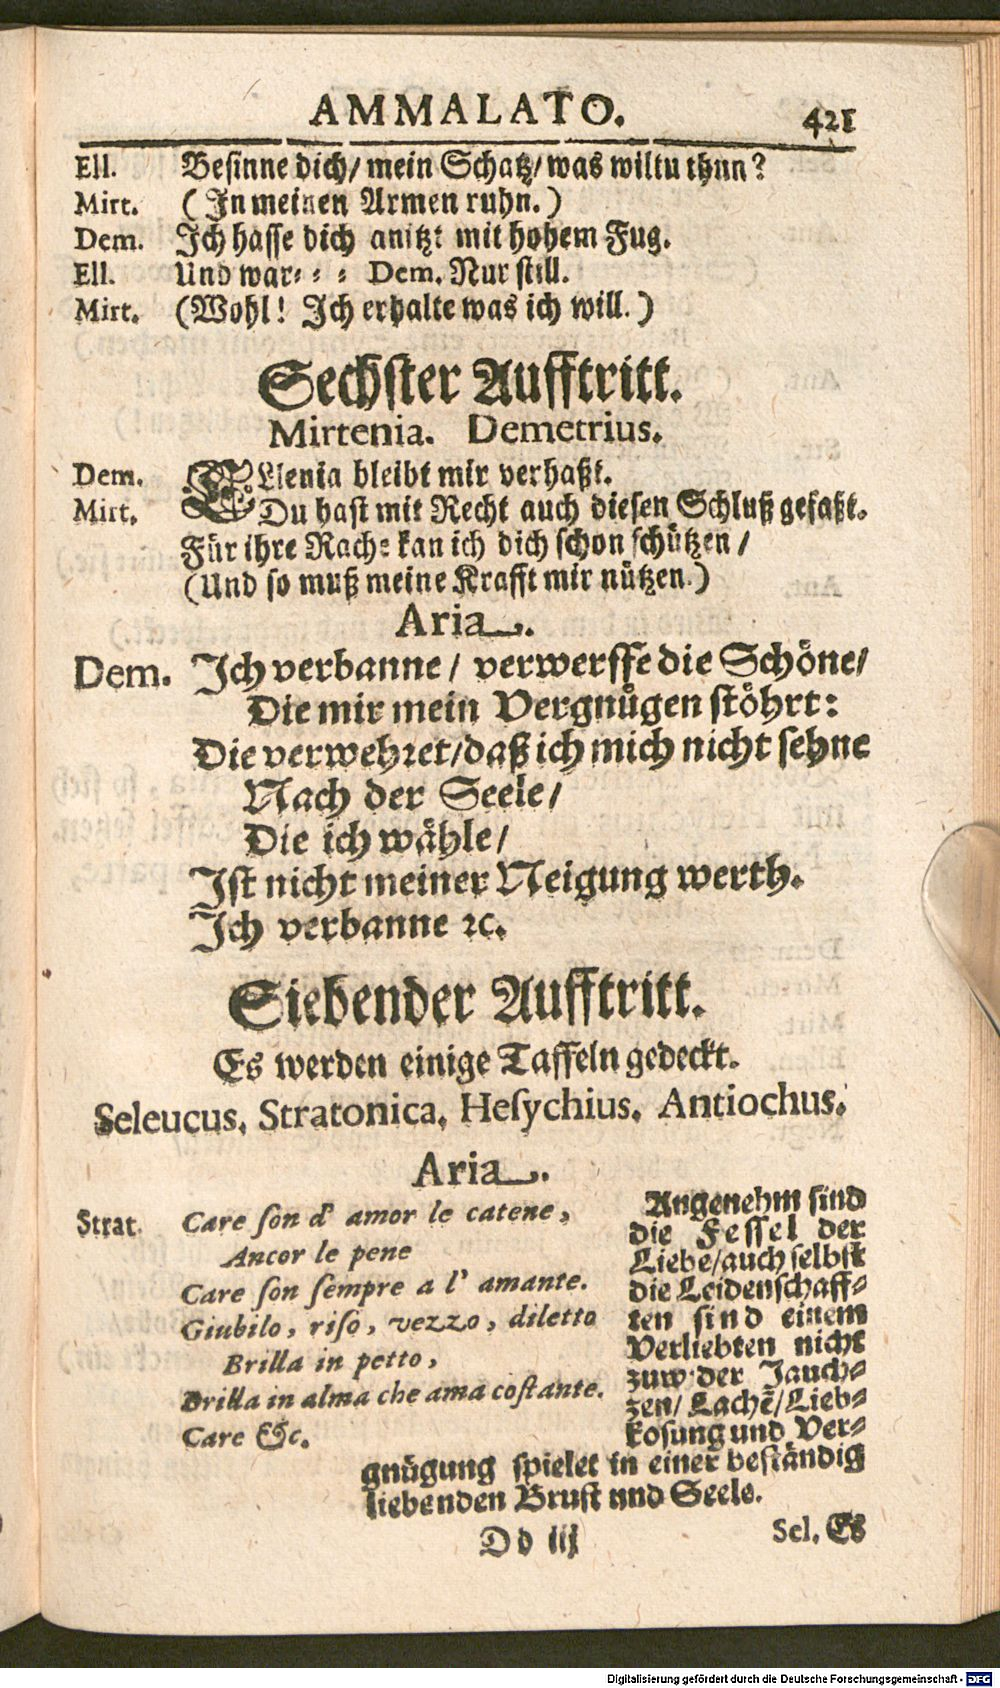 AMMALATO. 421
Ell. Besinne dich/ mein Schatz/ was wiltu thun?
Mirt. (In meinen Armen ruhn.)
Dem. Ich hasse dich anitzt mit hohem Fug.
Ell. Und war- - - Dem. Nur still.
Mirt. (Wohl! Ich erhalte was ich will.)
Sechster Aufftritt.
Mirtenia. Demetrius.
Dem. ELlenia bleibt mir verhaßt.
Mirt. Du hast mit Recht auch diesen Schluß gefaßt.
Für ihre Rache kan ich dich schon schützen/
(Und so muß meine Krafft mir nützen.)
Aria.
Dem. Ich verbanne/ verwerffe die Schöne/
Die mir mein Vergnügen stöhrt:
Die verwehret/ daß ich mich nicht sehne
Nach der Seele/
Die ich wähle/
Ist nicht meiner Neigung werth.
Ich verbanne ꝛc.
Siebender Aufftritt.
Es werden einige Taffeln gedeckt.
Seleucus. Stratonica. Hesychius. Antiochus.
Aria.
Strat. Care son d' amor le catene,
Ancor le pene
Care son sempre a l' amante.
Giubilo, riso, vezzo, diletto
Brilla in petto,
Brilla in alma che ama costante.
Care &c.
Angenehm sind
die Fessel der
Liebe/ auch selbst
die Leidenschaff-
ten sind einem
Verliebten nicht
zuwider Jauch-
zen/ Lachē/ Lieb-
kosung und Ver-
gnügung spielet in einer beständig
liebenden Brust und Seele.
Dd iij Sel. Es
Digitalisierung gefördert durch die Deutsche Forschungsgemeinschaft - DFG